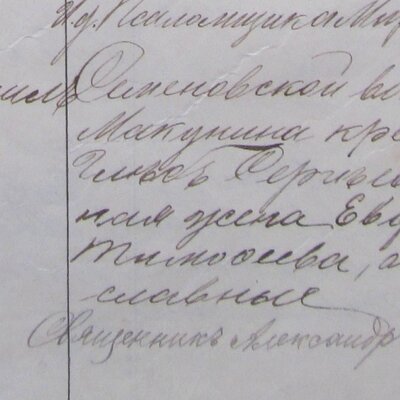 И.д. Псаломщика Ми
Семеновской вол
Макунина кре
Глѣбъ Сергѣев
ная жена Евд
Тимофеева, о
славные
Священникъ Александр